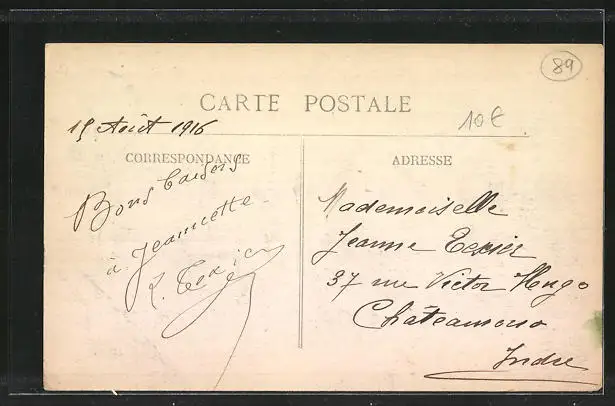 89
CARTE POSTALE
10€
15 Août 1916
CORRESPONDANCE
Bons baisers
à Jeannette
L. Texier
ADRESSE
Mademoiselle
Jeanne Texier
37 rue Victor Hugo
Châteauroux
Indre